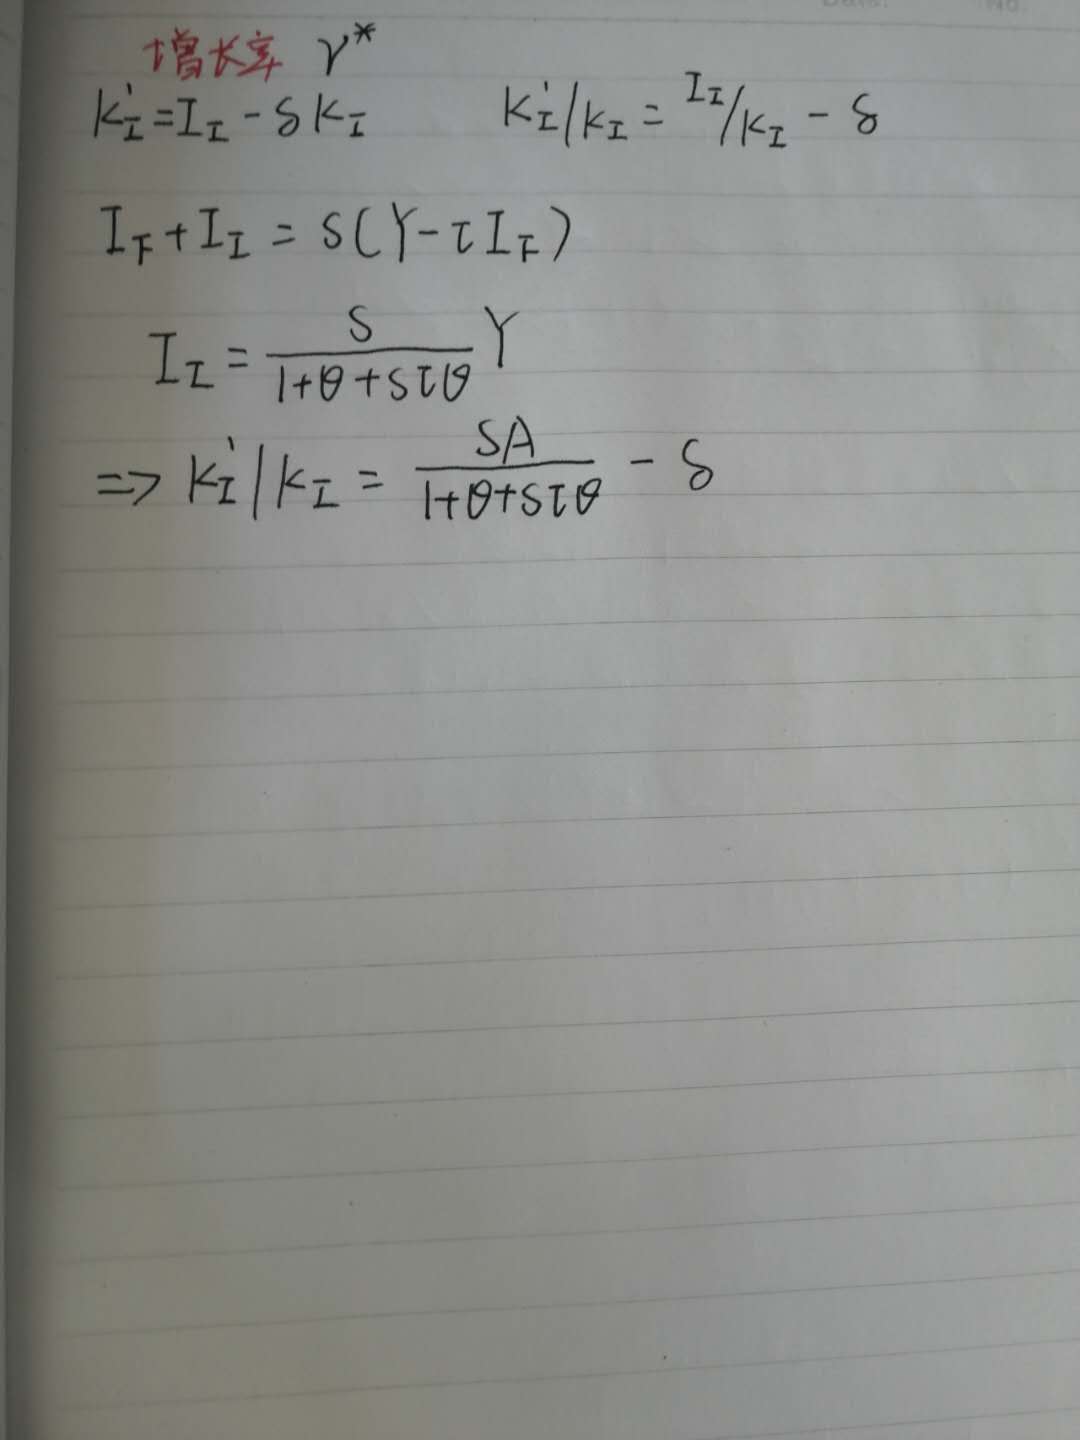 增长率 γ*
K̇_I = I_I - δK_I    K̇_I/K_I = I_I/K_I - δ
I_F + I_I = S(Y - τI_F)
I_I = S/(1+θ+Sτθ) Y
=> K̇_I/K_I = SA/(1+θ+Sτθ) - δ